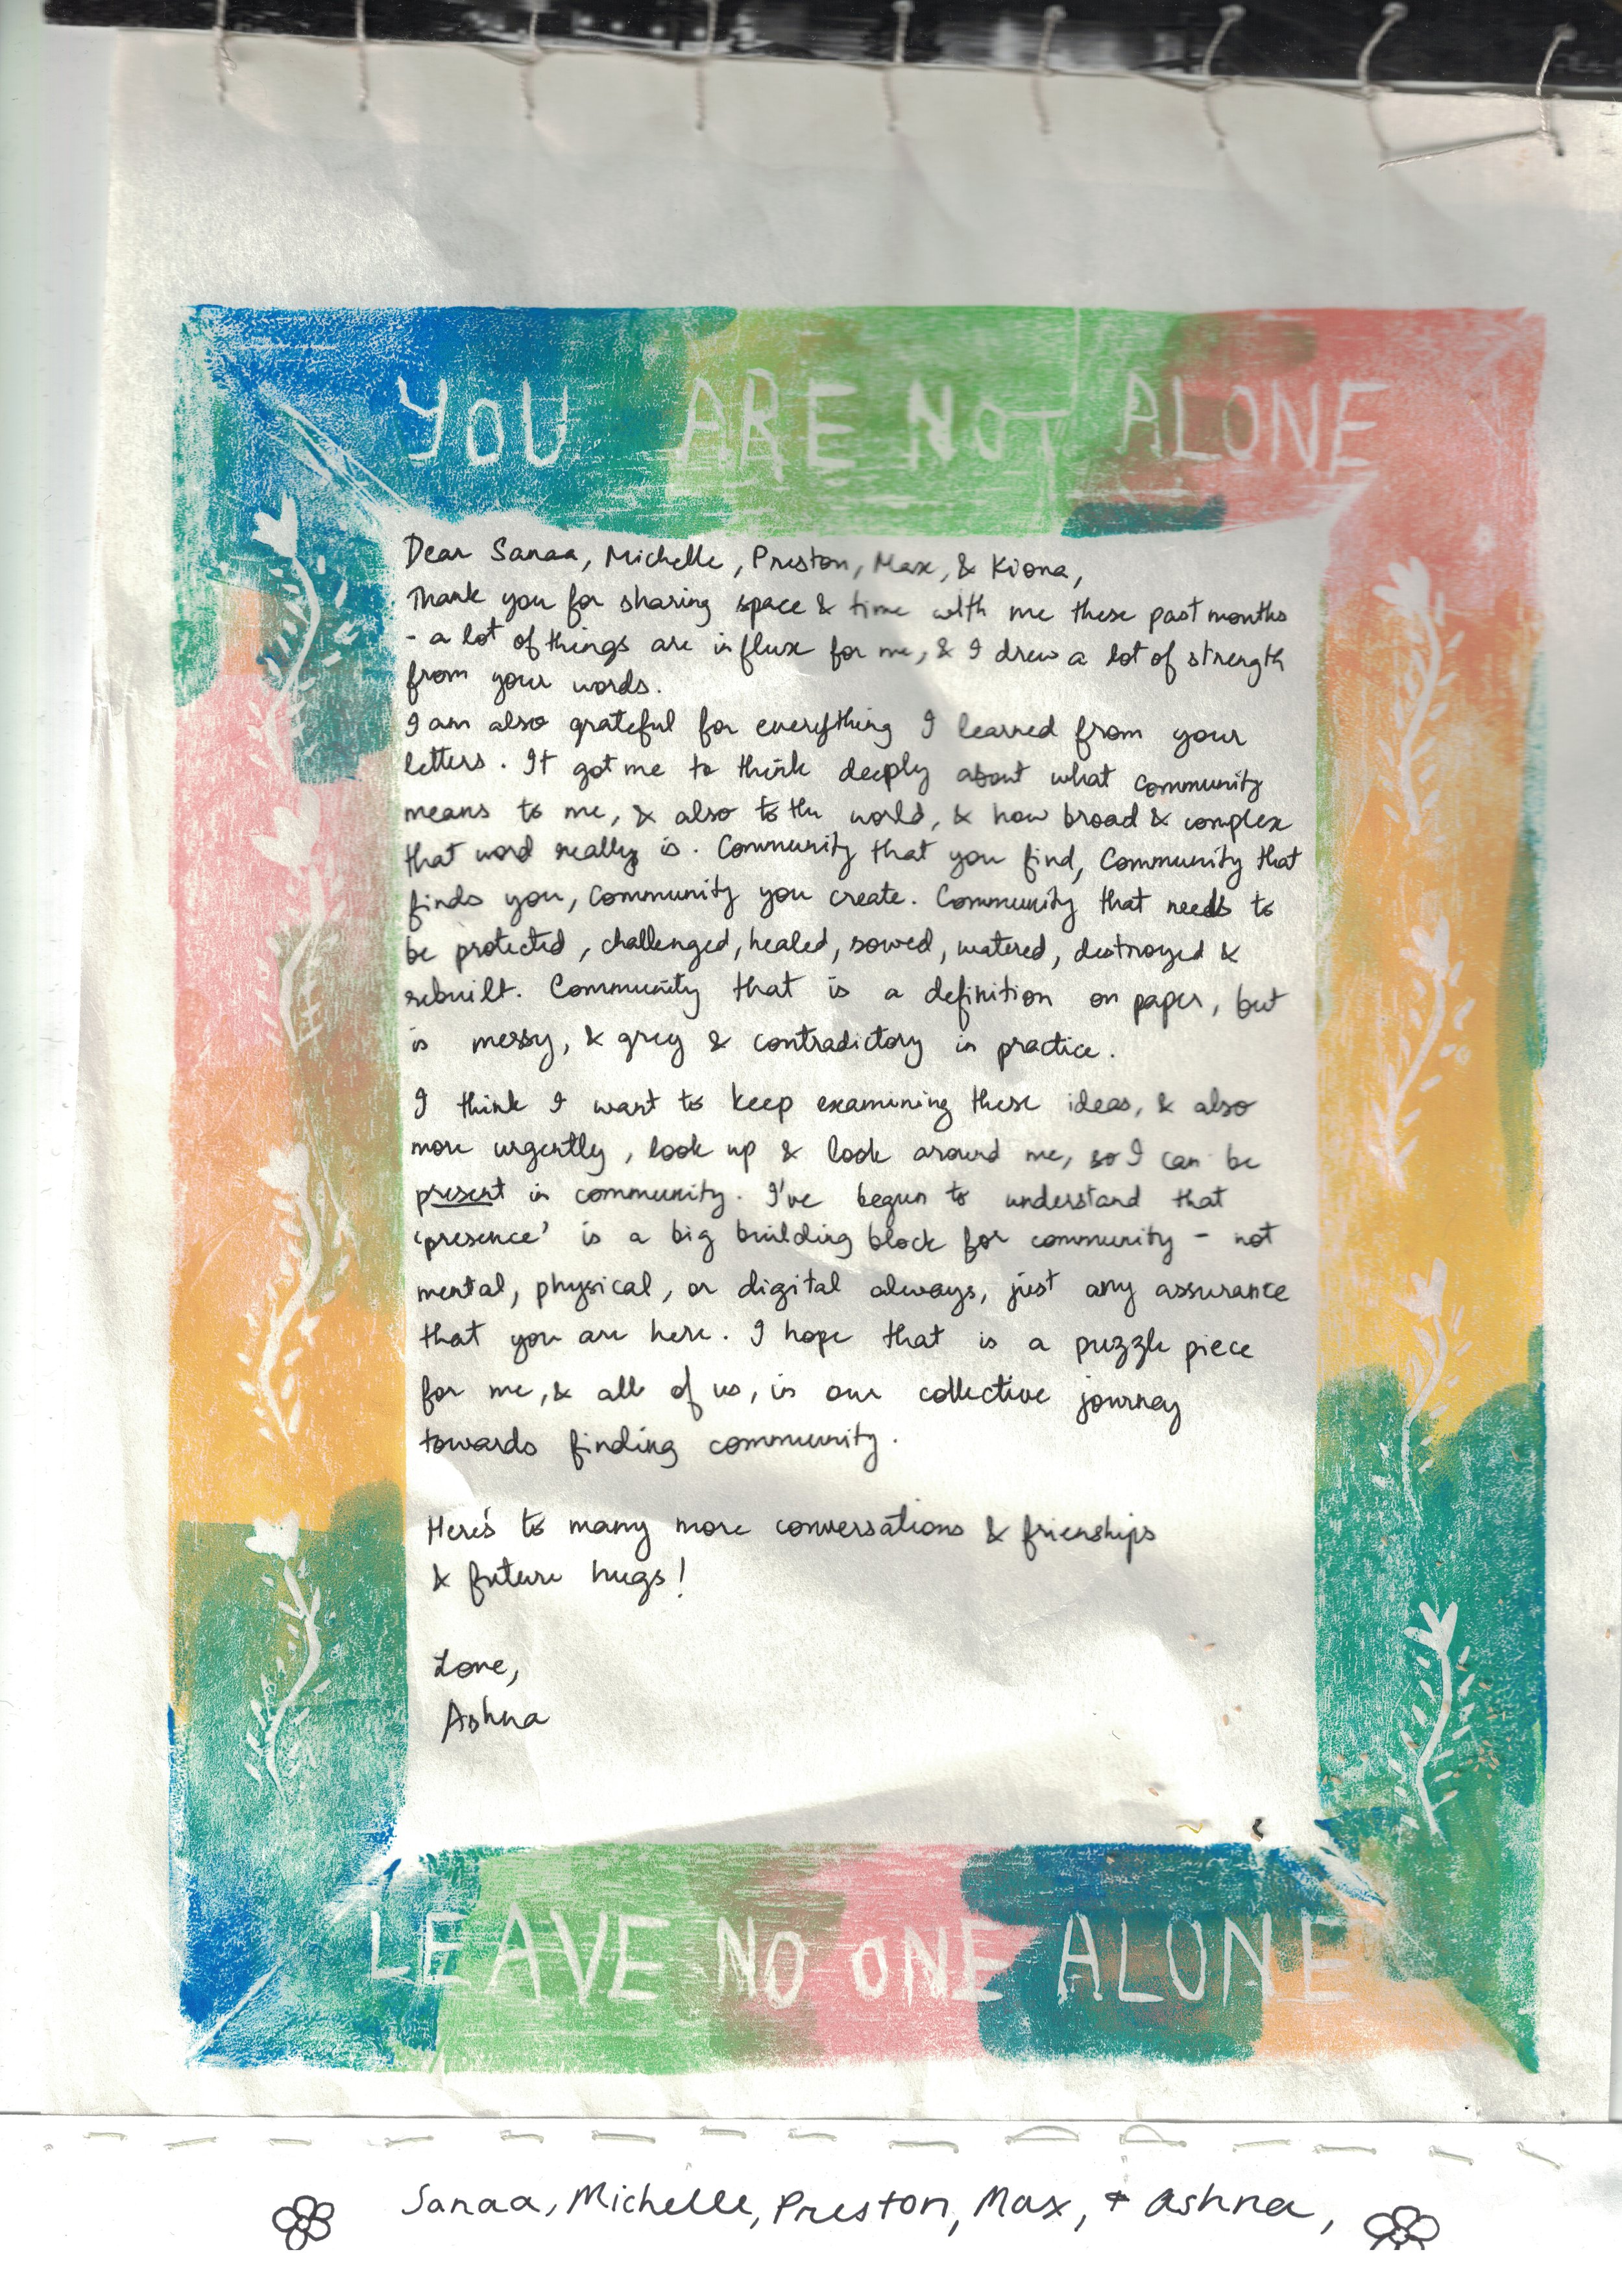 YOU ARE NOT ALONE
Dear Sanaa, Michelle, Preston, Max, & Kiona,
Thank you for sharing space & time with me these past months
- a lot of things are in flux for me, & I drew a lot of strength
from your words.
I am also grateful for everything I learned from your
letters. It got me to think deeply about what community
means to me, & also to the world, & how broad & complex
that word really is. Community that you find, Community that
finds you, Community you create. Community that needs to
be protected, challenged, healed, sowed, watered, destroyed &
rebuilt. Community that is a definition on paper, but
is messy, & grey & contradictory in practice.
I think I want to keep examining these ideas, & also
more urgently, look up & look around me, so I can be
present in community. I've begun to understand that
'presence' is a big building block for community - not
mental, physical, or digital always, just any assurance
that you are here. I hope that is a puzzle piece
for me, & all of us, in our collective journey
towards finding community.
Here's to many more conversations & frienships
& future hugs!
Love,
Ashna
LEAVE NO ONE ALONE
Sanaa, Michelle, Preston, Max, + Ashna,